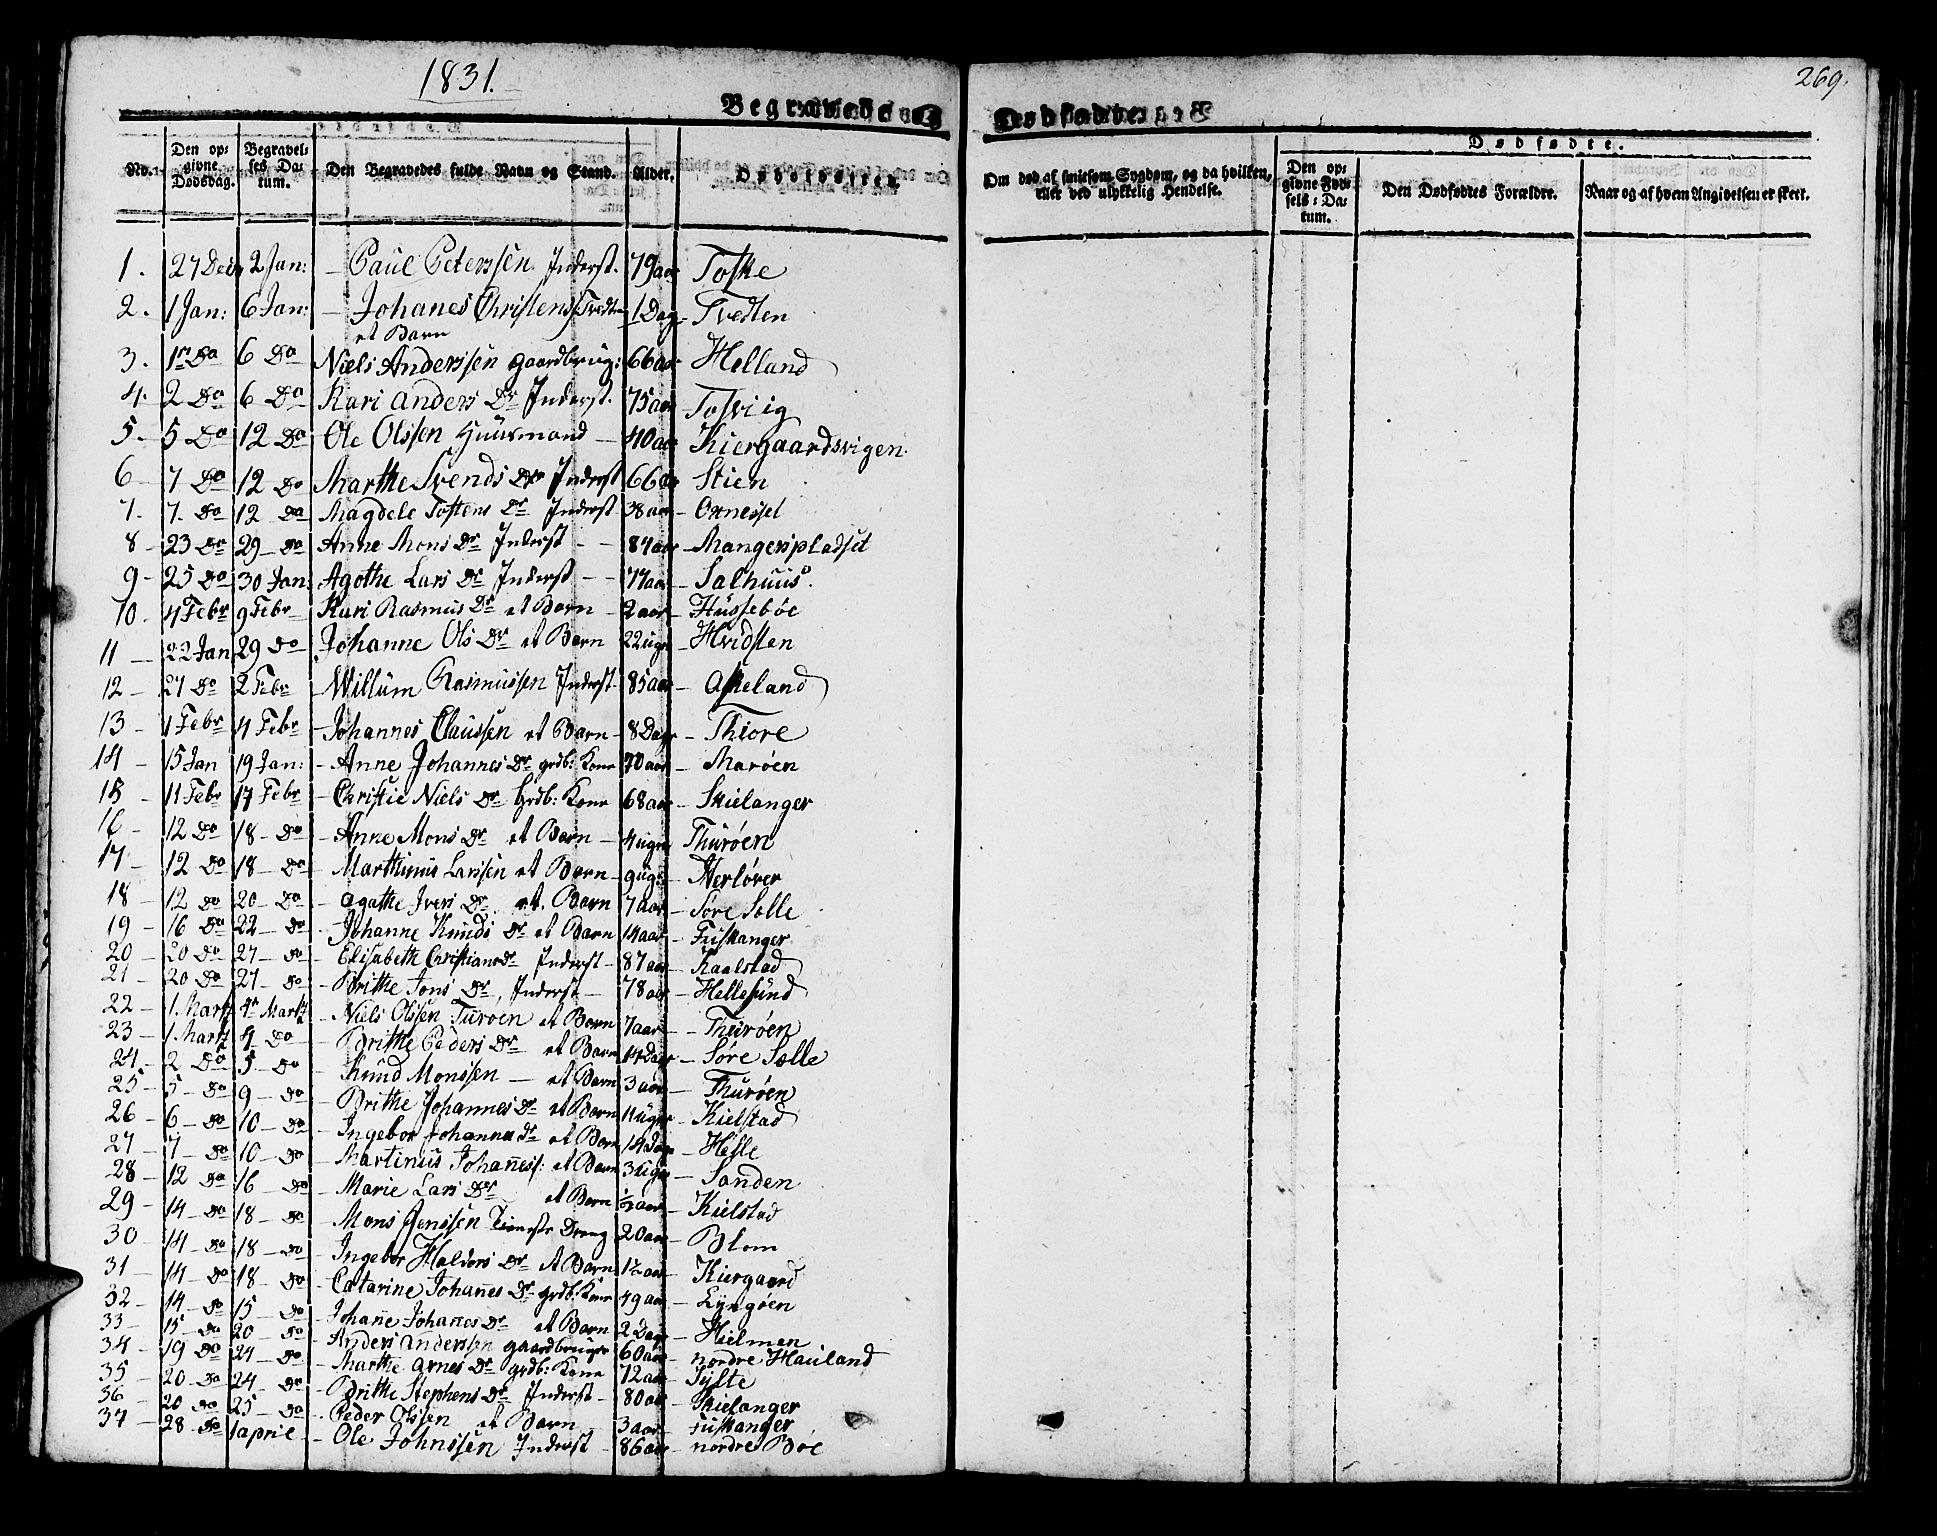 1831.
269.
Begravede
Dødfødte.
No.
Den op-
givne
Dødsdag.
Begravel-
ses Da-
tum.
Den Begravedes fulde Navn og Stand.
Alder.
Dødfødte.
Om død af smitsom Sygdom, og da hvilken,
eller ved ulykkelig Hendelse.
Den op-
givne Fød-
sels-Da-
tum.
Den Dødfødtes Forældre.
Naar og af hvem Angivelsen er skeet.
1. 27 Decbr 2 Jan: Paul Peterssen Inderst. 79 aar Toske
2. 1 Jan: 6 Jan: Johanes Christens. Tvedten 1 Dag Tvedten
et Barn
3. 1ste Do 6 Do Niels Anderssen gaardbrug: 66 aar Helland
4. 2 Do 6 Do Kari Anders Dr Inderst. 75 aar Tosviig
5. 5 Do 12 Do Ole Olssen Huusmand 40 aar Kiergaardsvigen.
6 7 Do 12 Do Marthe Svends Dr Inderst 66 aar Stien
7. 7. Do 12 Do Magdele Tostens Dr Inderst 38 aar
8 23 Do 29 Do Anne Mons Dr Inderst 87 aar Mangerspladset
9 25 Do 30 Jan: Agothe Lars Dr Inderst 77 aar Salhuus.
10. 4 Febr 9 Febr Kari Rasmus Dr et Barn 2 aar Hussebøe
11 22 Jan 29 Do Johanne Ols Dr et Barn 22 ugr Hvidsten
12 27 Do 2 Febr Willum Rasmussen Inderst 85 aar Askeland
13 1 Febr 4 Febr Johannes Claussen et Barn 8 Dage Thiore
14 15 Jan 19 Jan: Anne Johannes Dr grdb: Kone 70 aar Marøen
15 11 Febr 17 Febr Christie Niels Dr Grdb: Kone 68 aar Skielanger
16 12 Do 18 Do Anne Mons Dr et Barn 4 ugr Thurøen
17 12 Do 18 Do Marthinus Larssen et Barn 9 ugr Herløver
18 12 Do 20 Do Agathe Ivers Dr et Barn 7 aar Søre Sælle
19 16 Do 22 Do Johanne Knuds Dr et Barn 14 aar Fuskanger
20 20 Do 27 Do Elisabeth Christians Dr Inderst 87 aar Kaalstad
21 20 Do 27 Do Brithe Jons Dr, Inderst 78 aar Hellesund
22 1. Martz 4de Martz Niels Olssen Turøen et Barn 7 aar Thurøen
23 1. Martz 4 Do Brithe Peders Dr et Barn 14 Dage Søre Sælle
24 2 Do 5 Do Knud Monssen et Barn 3 aar Thurøen
25 5 Do 9 Do Brithe Johannes Dr et Barn 11 uger Kielstad
26 6 Do 10 Do Ingebor Johannes Dr et Barn 14 Dage Helle
27 7 Do 10 Do Martinus Johaness: et Barn 3 uger Sanden
28 12 Do 16 Do Marie Lars Dr et Barn 1/2 aar Kielstad
29 14 Do 18 Do Mons Jenssen Tieneste Dreng 20 aar Blom
30 14 Do 18 Do Ingebor Haldors Dr et Barn 1 1/2 aar Kiergaard
31 14 Do 18 Do Catarine Johanes Dr grdb: Kone 49 aar Lyngøen
32 14 Do 15 Do Johane Johanes Dr et Barn 2 Dage Hielmen
33 15 Do 20 Do Anders Anderssen gaardbruger 60 aar nordre Hauland
34 19 Do 24 Do Marthe Arnes Dr grdb: Kone 72 aar Sylte
35 20 Do 24 Do Brithe Stephens Dr Inderst 80 aar Skielanger
36 20 Do 25 Do Peder Olssen et Barn 3 aar Fuskanger
37 28 Do 1 april Ole Johnssen Inderst 86 aar nordre Bøe